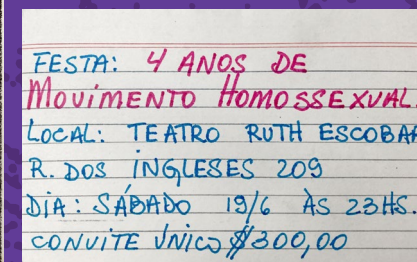 FESTA: 4 ANOS DE
MOVIMENTO HOMOSSEXUAL.
LOCAL: TEATRO RUTH ESCOBAR
R. DOS INGLESES 209
DIA: SÁBADO 19/6 ÀS 23HS.
CONVITE ÚNICO $300,00